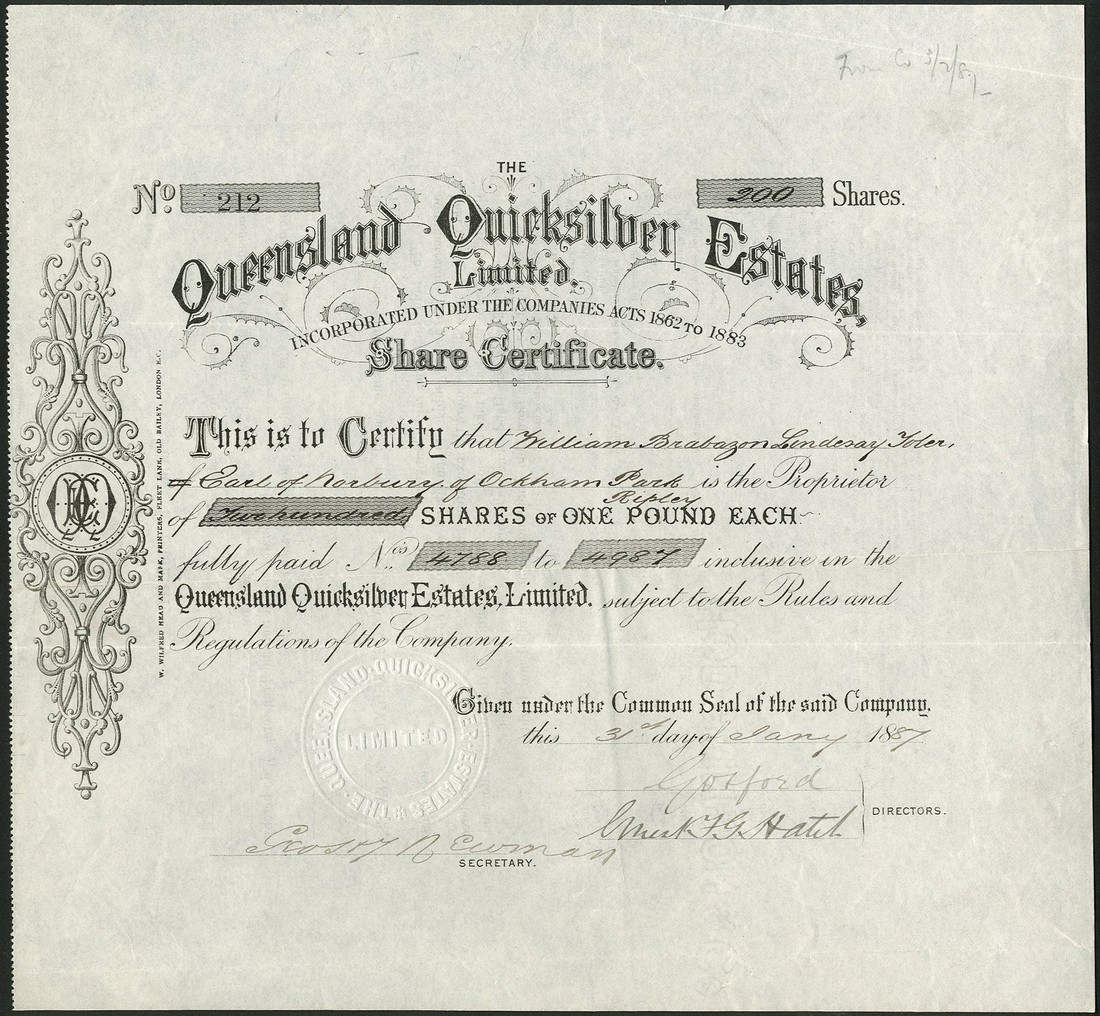 From Co 3/2/87
THE
No. 212
200 Shares.
Queensland Quicksilver Estates,
Limited.
INCORPORATED UNDER THE COMPANIES ACTS 1862 TO 1883
Share Certificate.
This is to Certify that William Brabazon Lindesay Toler,
Earl of Norbury, of Ockham Park is the Proprietor
Ripley
of Two hundred SHARES OF ONE POUND EACH
fully paid Nos. 4788 to 4987 inclusive in the
Queensland Quicksilver Estates, Limited. subject to the Rules and
Regulations of the Company.
Given under the Common Seal of the said Company.
this 31st day of Jany 1887
Gosford
Hatch
DIRECTORS.
Newman
SECRETARY.
THE QUEENSLAND QUICKSILVER ESTATES
LIMITED
W. WILFRED HEAD AND MARK, PRINTERS, FLEET LANE, OLD BAILEY, LONDON E.C.